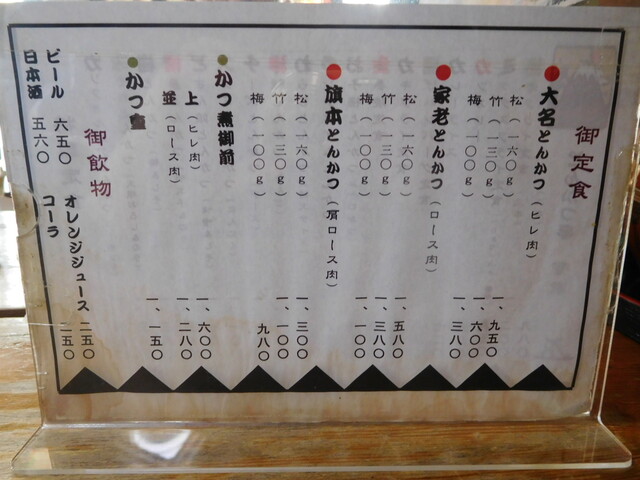 御定食
大名とんかつ（ヒレ肉）
松（一六〇g） 一、九五〇
竹（一三〇g） 一、六〇〇
梅（一〇〇g） 一、三八〇
家老とんかつ（ロース肉）
松（一六〇g） 一、五八〇
竹（一三〇g） 一、三八〇
梅（一〇〇g） 一、一〇〇
旗本とんかつ（肩ロース肉）
松（一六〇g） 一、三〇〇
竹（一三〇g） 一、一〇〇
梅（一〇〇g） 九八〇
かつ煮御前
上（ヒレ肉） 一、六〇〇
並（ロース肉） 一、二八〇
かつ重 一、一五〇
御飲物
ビール 六五〇
日本酒 五六〇
オレンジジュース 二五〇
コーラ 二五〇